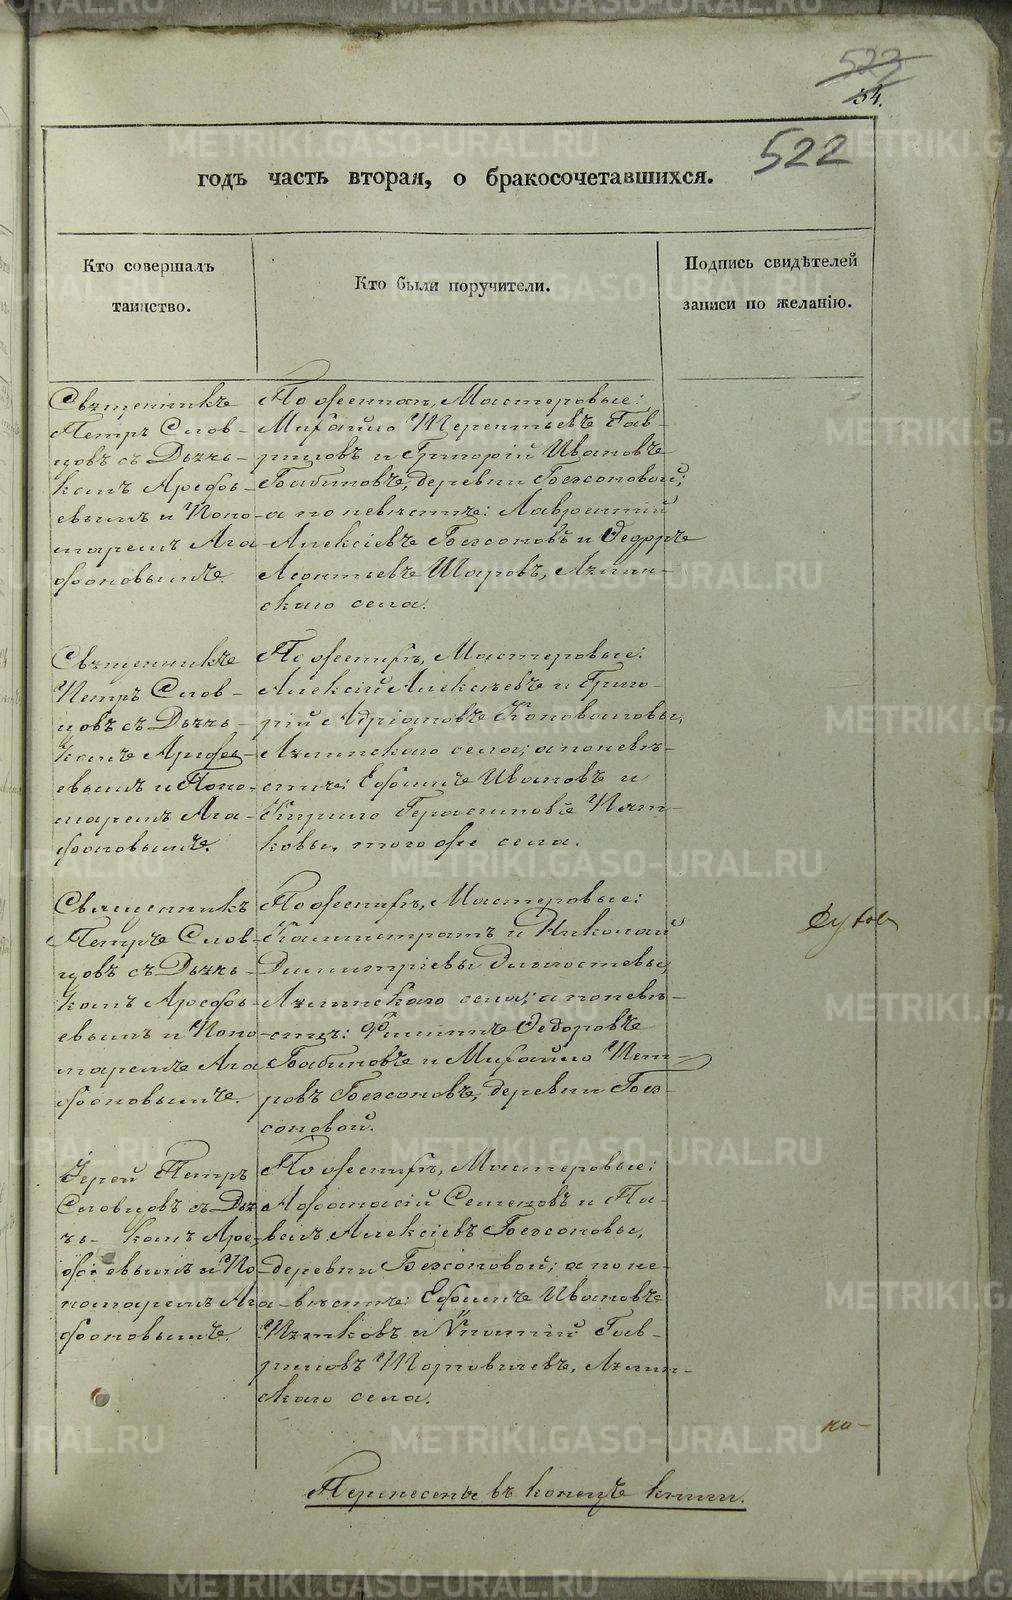 523
54.
522
годъ часть вторая, о бракосочетавшихся.
Кто совершалъ
таинство.
Кто были поручители.
Подпись свидѣтелей
записи по желанію.
Священникъ
Петръ Слов-
цовъ съ Дьячь-
комъ Арефь-
евымъ и Поно-
маремъ Ага-
фоновымъ.
По женихѣ, Мастеровые:
Михайло Терентьевъ Гав-
риловъ и Григорій Ивановъ
Бабиновъ, деревни Безсоновой;
а по невѣстѣ: Лаврентій
Алексіевъ Безсоновъ и Федоръ
Леонтьевъ Шаровъ, Аяцин-
скаго села.
Священникъ
Петръ Слов-
цовъ съ Дьячь-
комъ Арефь-
евымъ и Поно-
маремъ Ага-
фоновымъ.
По женихѣ, Мастеровые:
Алексій Алексѣевъ и Григо-
рій Адріановъ Коноваловы,
села; а по невѣ-
стѣ: Ефимъ Ивановъ и
Кирило Герасимовъ Пят-
ковы, того же села.
Священникъ
Петръ Слов-
цовъ съ Дьячь-
комъ Арефь-
евымъ и Поно-
маремъ Ага-
фоновымъ.
По женихѣ, Мастеровые:
Каллистратъ и Николай
Димитріевы
села; а по невѣ-
стѣ: Филиппъ Федоровъ
Бабиновъ и Михайло Пет-
ровъ Безсоновъ, деревни Без-
соновой.
Іерей Петръ
Словцовъ съ Дья-
чь- комъ Аре-
фьевымъ и По-
номаремъ Ага-
фоновымъ.
По женихѣ, Мастеровые:
Афанасій Семеновъ и Па-
велъ Алексіевъ Безсоновы,
деревни Безсоновой; а по не-
вѣстѣ: Ефимъ Ивановъ
Пятковъ и Ѵпатій Гав-
риловъ
скаго села.
ка-
Перенесены въ конецъ книги.
METRIKI.GASO-URAL.RU